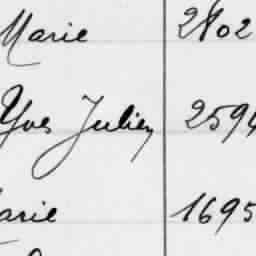 Marie 2802
Yves Julien 2594
arie 1695